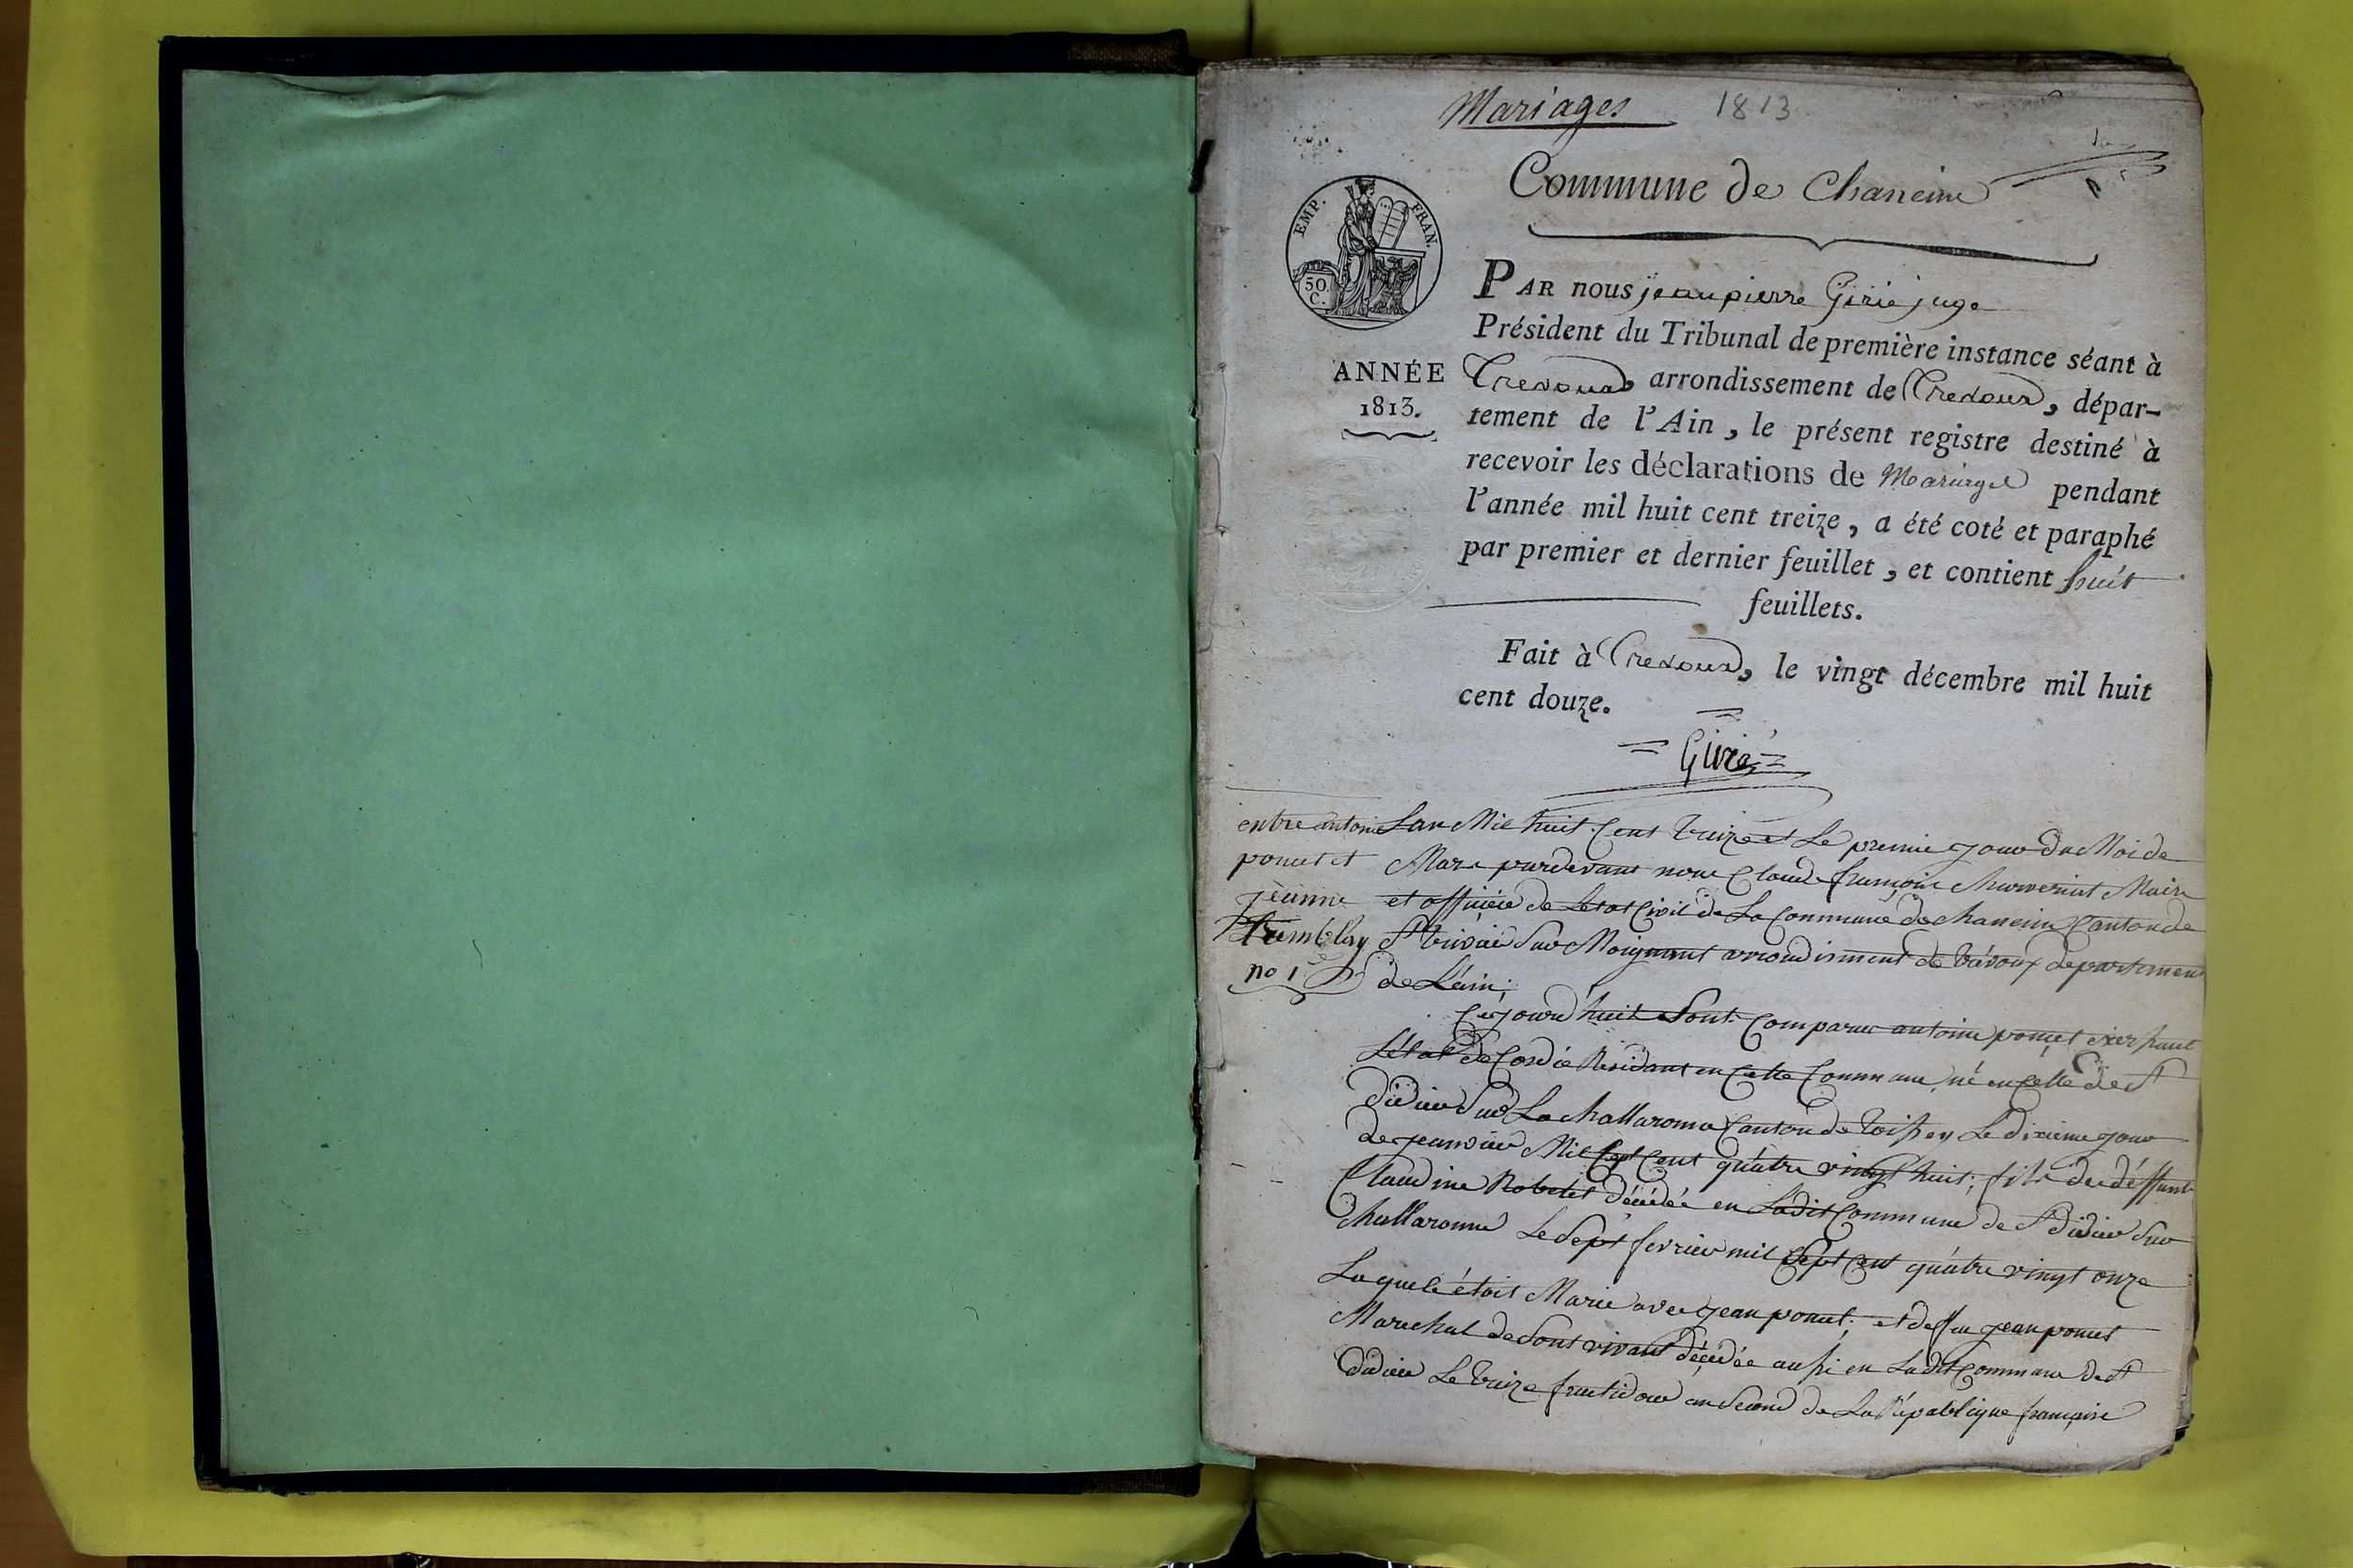 Mariages 1813
Commune de Chaneins
EMP. FRAN.
50.
C.
PAR nous jean pierre Girié juge
Président du Tribunal de première instance séant à
ANNÉE
1813.
Trevoux, arrondissement de Trevoux, dépar-
tement de l'Ain, le présent registre destiné à
recevoir les déclarations de Mariages pendant
l'année mil huit cent treize, a été coté et paraphé
par premier et dernier feuillet, et contient huit
feuillets.
Fait à Trevoux, le vingt décembre mil huit
cent douze.
Girié
entre antoine
poncet et
jeanne
tremblay
no 1
Lan Mil huit Cent treize et Le premie jour du Moi de
Mars pardevant nous Claude françois Maire
et officié de Letat Civil de La Commune de chaneins Canton de
St trivier Sur Moignant arrondisment de trévoux departement
de Lain;
Cejourd'huit Sont Comparue antoine poncet exersant
L'état de Cordié Residant en Cette Commune né en Celle de St
didier Sur La challaronne Canton de toissey Le dixieme jour
de jeanvier Mil Sept Cent quatre vingt huit; fils de déffunt
Claudine Robelet décédée en Ladit Commune de St didier Sur
challaronne Le Sept fevrier mil Sept Cent quatre vingt onze
Laquele étoit Marié avec jean poncet; et de feu jean poncet
Marechal de Sont vivant décédée aussi en Ladit Commune de St
didier Le treize fructidor an Second de La République françoise